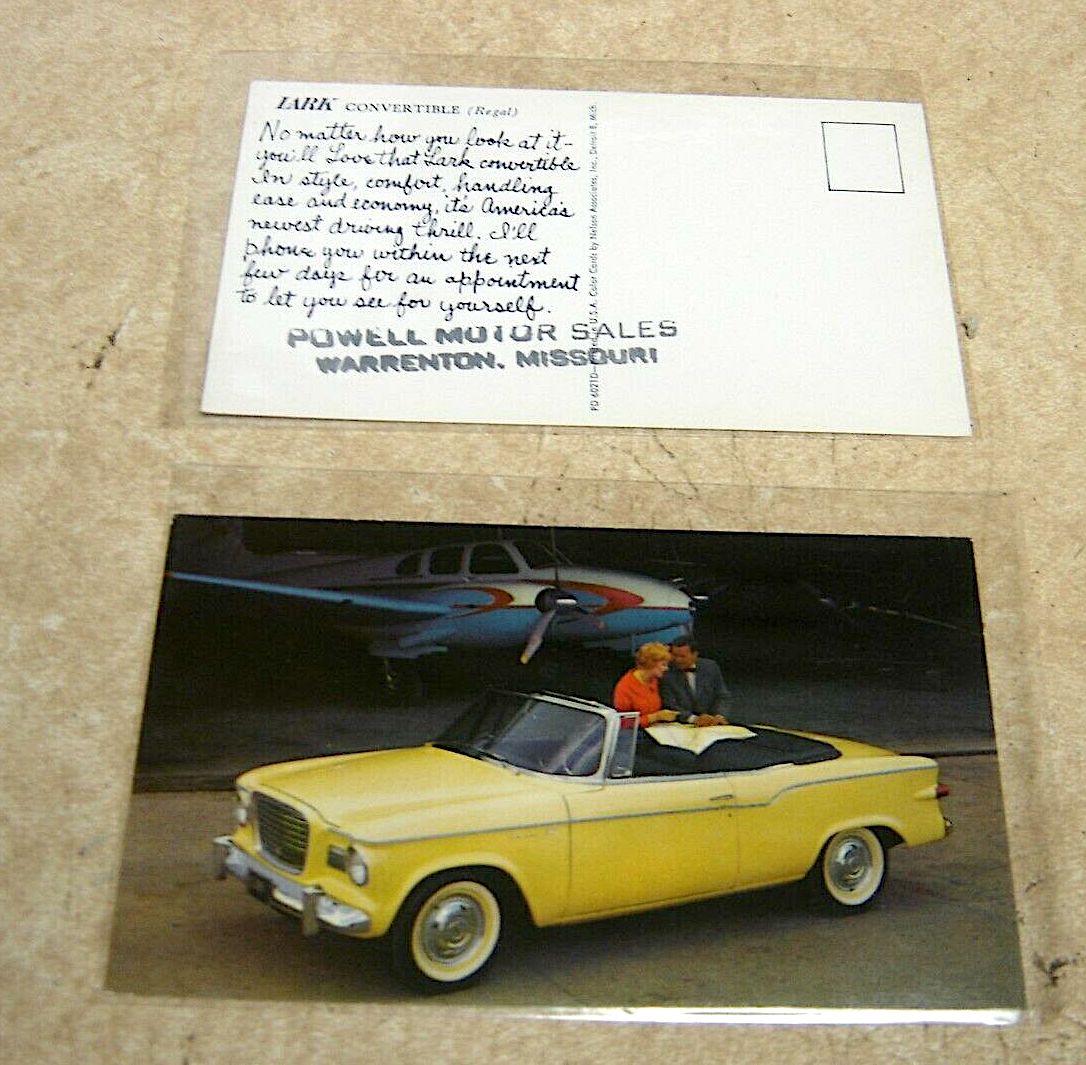 LARK CONVERTIBLE (Regal)
No matter how you look at it-
you'll Love that Lark convertible
In style, comfort, handling
ease and economy, it's America's
newest driving thrill. I'll
phone you within the next
few days for an appointment
to let you see for yourself.
POWELL MOTOR SALES
WARRENTON, MISSOURI
PD 6021D— in U.S.A. Color Cards by Nelson Associates, Inc., Detroit 8, Mich.